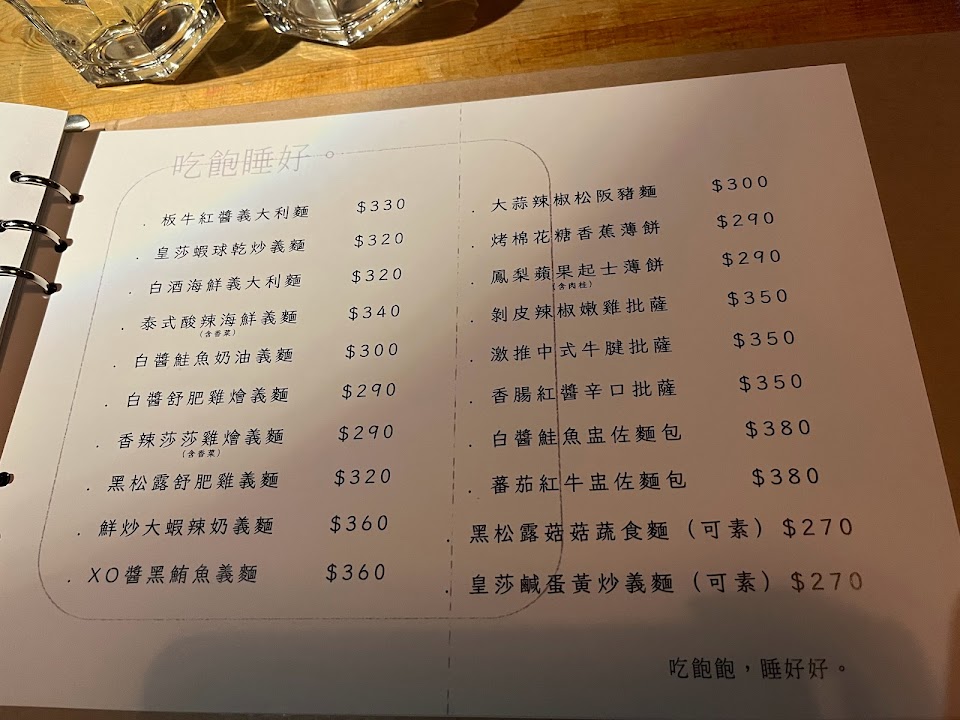 吃飽睡好。
. 板牛紅醬義大利麵 $330
. 皇莎蝦球乾炒義麵 $320
. 白酒海鮮義大利麵 $320
. 泰式酸辣海鮮義麵 $340
(含香菜)
. 白醬鮭魚奶油義麵 $300
. 白醬舒肥雞燴義麵 $290
. 香辣莎莎雞燴義麵 $290
(含香菜)
. 黑松露舒肥雞義麵 $320
. 鮮炒大蝦辣奶義麵 $360
. XO醬黑鮪魚義麵 $360
. 大蒜辣椒松阪豬麵 $300
. 烤棉花糖香蕉薄餅 $290
. 鳳梨蘋果起士薄餅 $290
(含肉桂)
. 剝皮辣椒嫩雞批薩 $350
. 激推中式牛腱批薩 $350
. 香腸紅醬辛口批薩 $350
. 白醬鮭魚盅佐麵包 $380
. 蕃茄紅牛盅佐麵包 $380
. 黑松露菇菇蔬食麵（可素）$270
. 皇莎鹹蛋黃炒義麵（可素）$270
吃飽飽，睡好好。